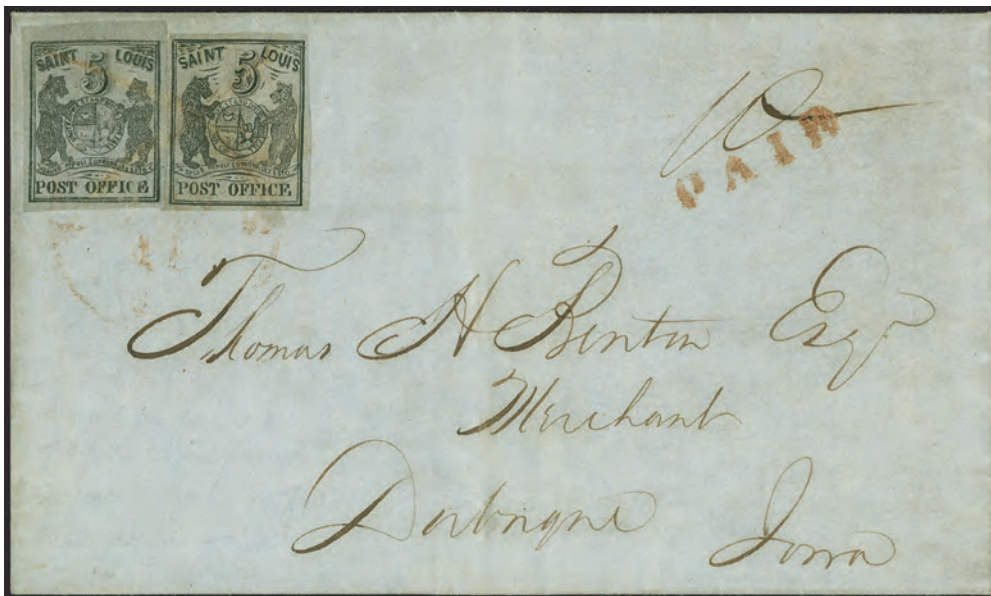 SAINT 5 LOUIS
POST OFFICE
SAINT 5 LOUIS
POST OFFICE
10
PAID
Thomas H Benton Esqr
Merchant
Dubuque Iowa